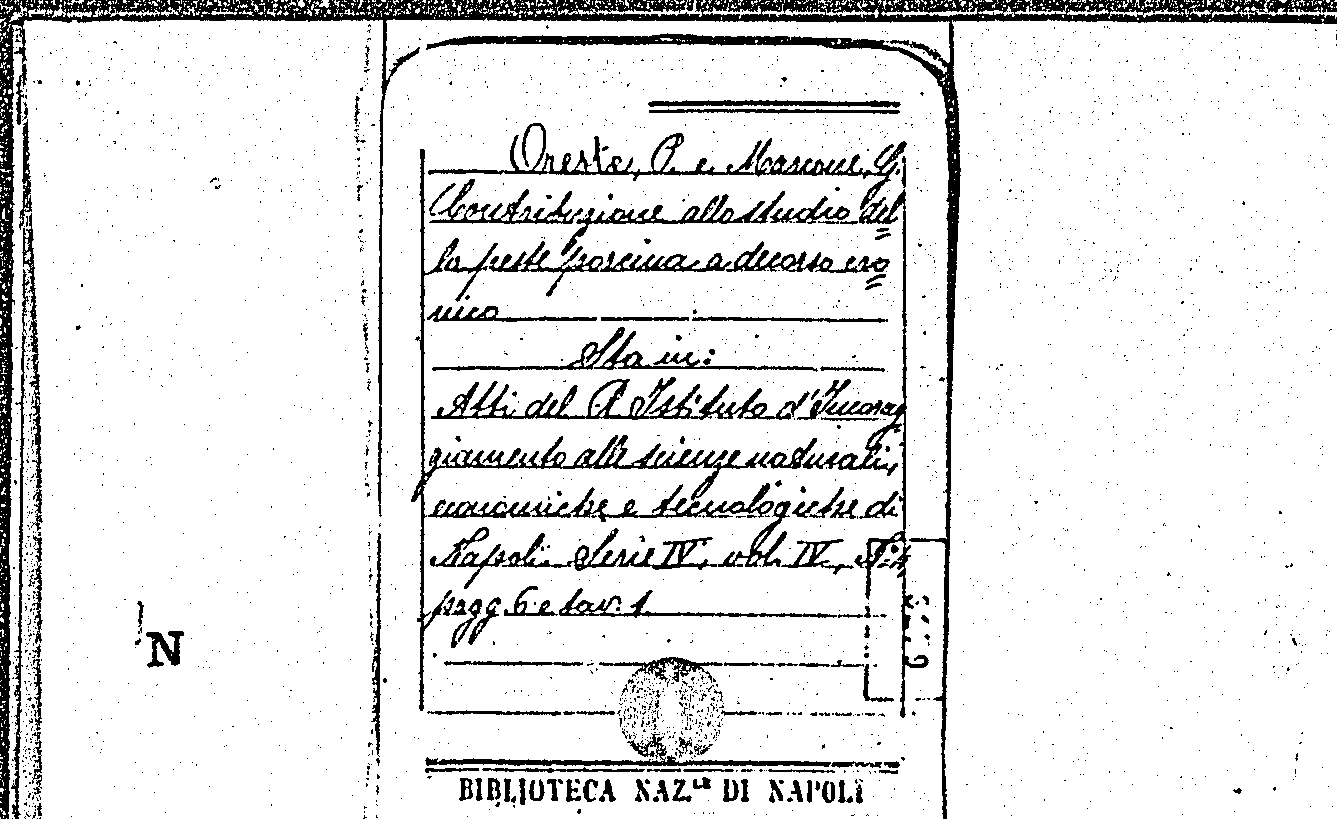 Oreste, P. e Marcone, G.
Contribuzione allo studio del
la peste porcina a decorso cro
nico
Sta in:
Atti del R. Istituto d'Incorag
giamento alle scienze naturali,
economiche e tecnologiche di
Napoli. Serie IV, vol. IV, N.º 4
pagg. 6 e tav. 1
N
BIBLIOTECA NAZ.LE DI NAPOLI